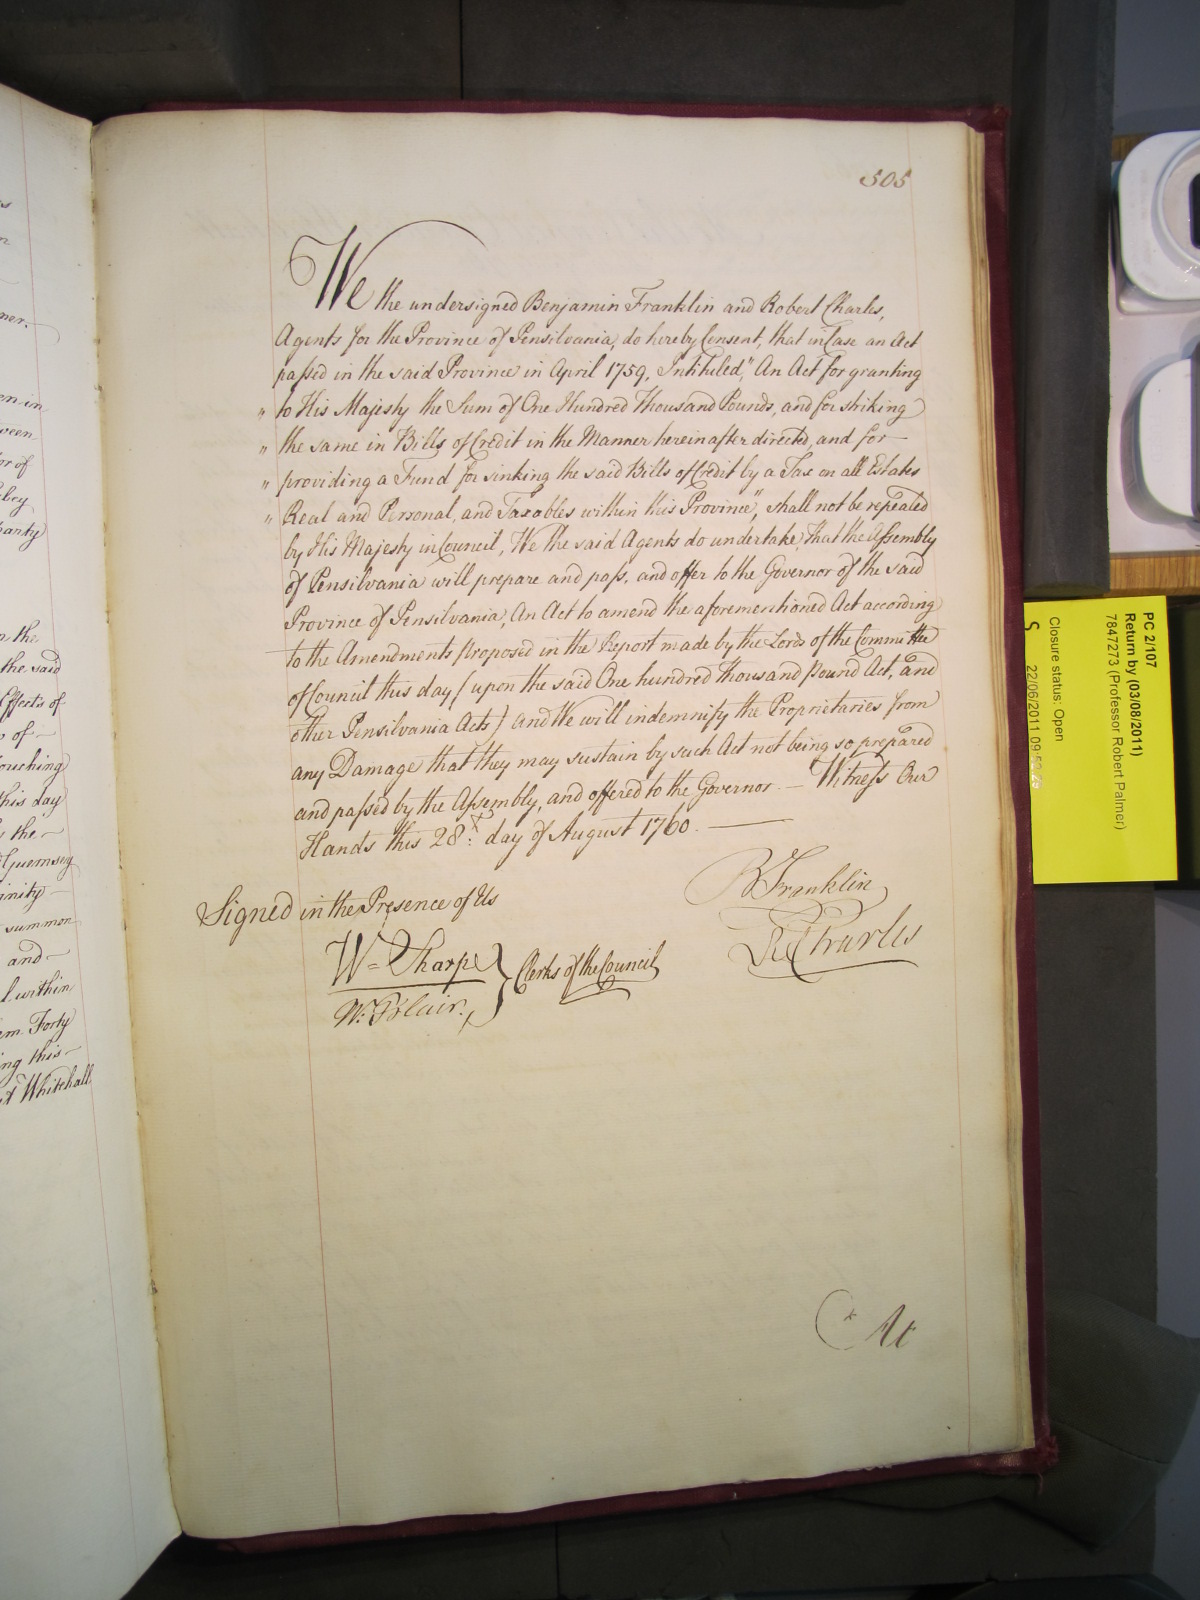 505
We the undersigned Benjamin Franklin and Robert Charles,
Agents for the Province of Pensilvania, do hereby Consent, that in Case an Act
passed in the said Province in April 1759, Intituled, "An Act for granting
" to His Majesty the Sum of One Hundred Thousand Pounds, and for striking
" the same in Bills of Credit in the Manner herein after directed, and for
" providing a Fund for sinking the said Bills of Credit by a Tax on all Estates
" Real and Personal, and Taxables within this Province", shall not be repealed
by His Majesty in Council, We the said Agents do undertake, that the Assembly
of Pensilvania will prepare and pass, and offer to the Governor of the said
Province of Pensilvania, An Act to amend the aforementioned Act according
to the Amendments proposed in the Report made by the Lords of the Committee
of Council this day (upon the said One hundred thousand pound Act, and
other Pensilvania Acts) and We will indemnify the Proprietaries from
any Damage that they may sustain by such Act not being so prepared
and passed by the Assembly, and offered to the Governor. — Witness Our
Hands this 28th day of August 1760.
B Franklin
Rt Charles
Signed in the Presence of Us
Wm Sharpe
W. Blair.
Clerks of the Council
At
ner.
en in
ween
or of
the
the said
Effects of
of
ouching
this day
the
Guernsey
inity
summon
and
within
Forty
ing this
at Whitehall
PC 2/107
Return by (03/08/2011)
7847273 (Professor Robert Palmer)
Closure status: Open
S
22/06/2011 09:52:25